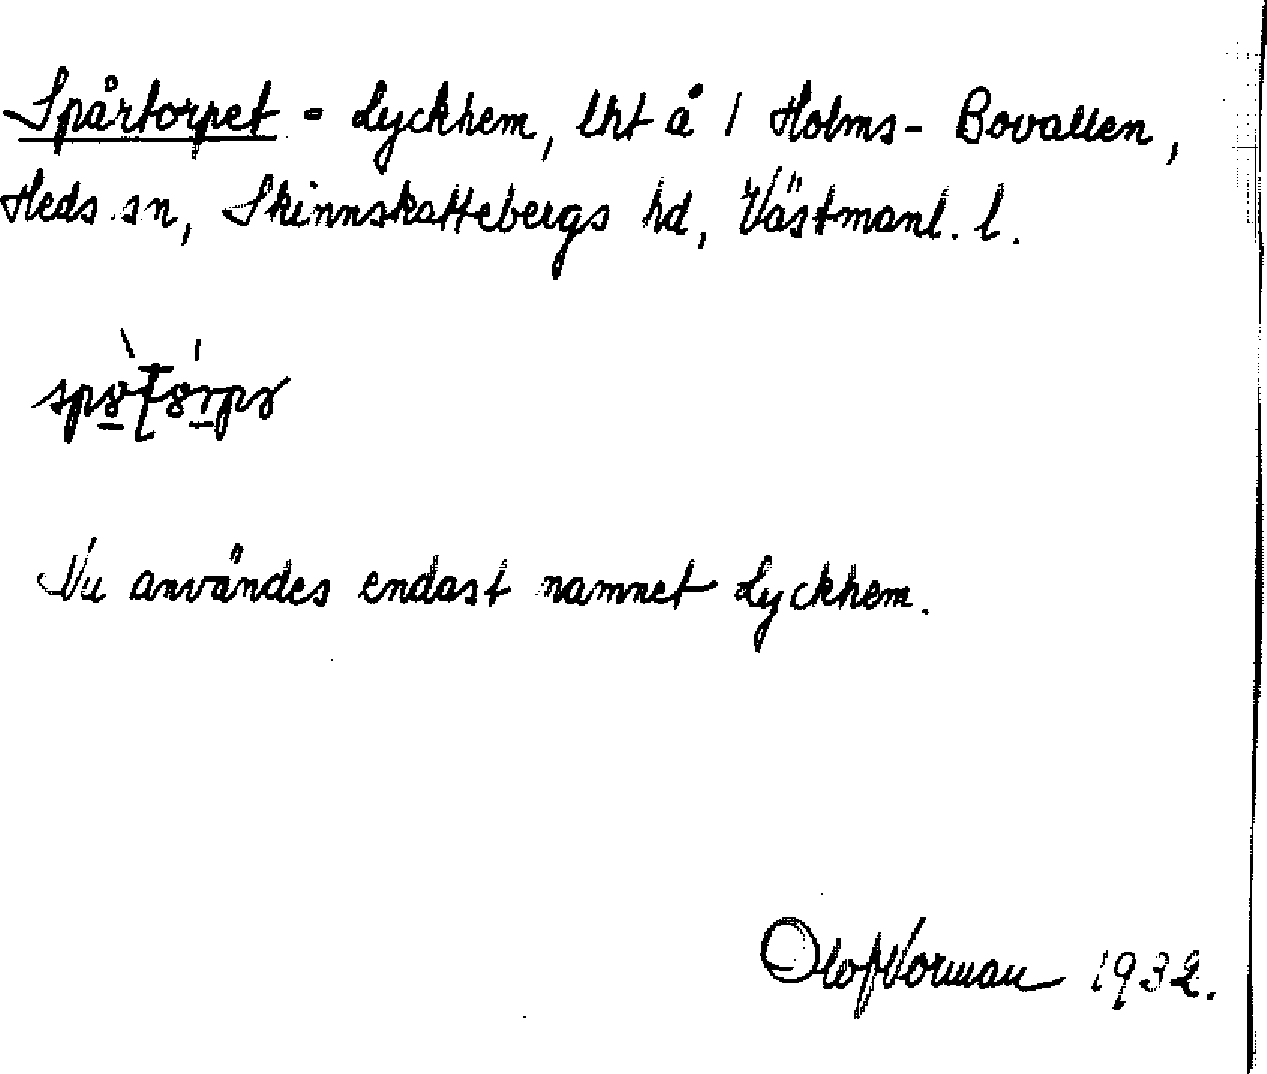 Spårtorpet = Lyckhem, lht å 1 Holms- Bovallen,
Heds sn, Skinnskattebergs hd, Västmanl. l.
Nu användes endast namnet Lyckhem.
Olof Norman 1932.